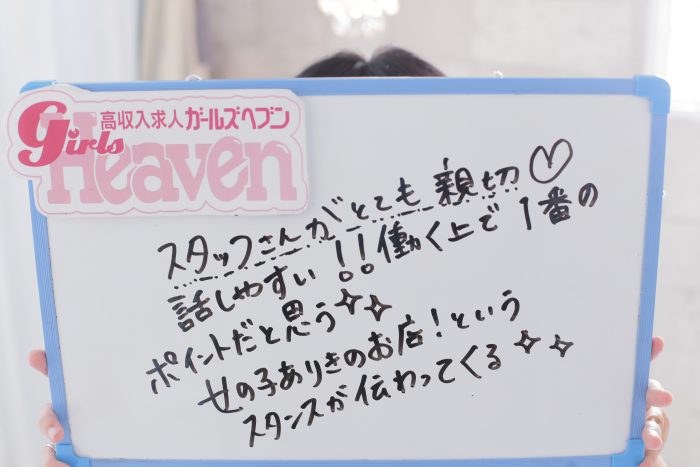 高収入求人ガールズヘブン
Girls
Heaven
スタッフさんがとても親切♡
話しやすい!!働く上で1番の
ポイントだと思う✧✧
女の子ありきのお店!という
スタンスが伝わってくる✧✧